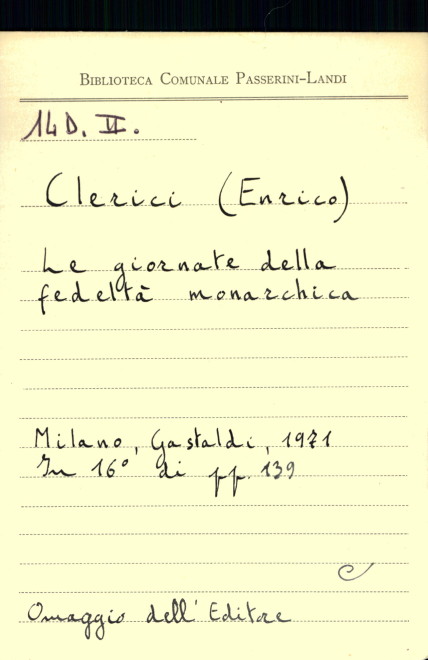 BIBLIOTECA COMUNALE PASSERINI-LANDI
14 D. VI.
Clerici (Enrico)
Le giornate della
fedeltà monarchica
Milano, Gastaldi, 1971
In 16° di pp. 139
C
Omaggio dell'Editore